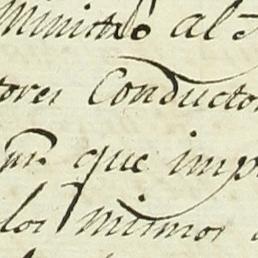 Ministro al
tores Conductor
que imp
los mismos